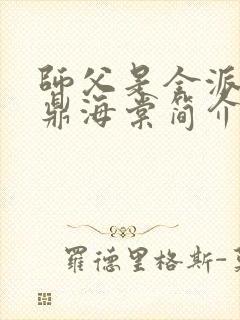 師父是全派
鼎海棠简介
羅德里格斯-莫